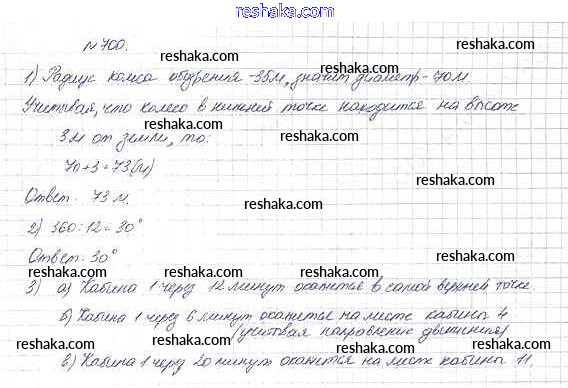 www.reshaka.com
reshaka.com
№700.
reshaka.com reshaka.com
1) Радиус колеса обозрения -35м, значит диаметр -70м.
reshaka.com reshaka.com reshaka.com
Учитывая, что колесо в нижней точке находится на высоте
reshaka.com reshaka.com
3м от земли, то:
70+3=73(м)
reshaka.com reshaka.com
Ответ: 73 м.
reshaka.com
2) 360:12=30°
reshaka.com
Ответ: 30°
reshaka.com reshaka.com reshaka.com
3) а) Кабина 1 через 12 минут окажется в самой верхней точке.
reshaka.com reshaka.com
б) Кабина 1 через 6 минут окажется на месте кабины 4
(учитывая направление движения)
reshaka.com reshaka.com reshaka.com
в) Кабина 1 через 20 минут окажется на месте кабины 11.
reshaka.com reshaka.com